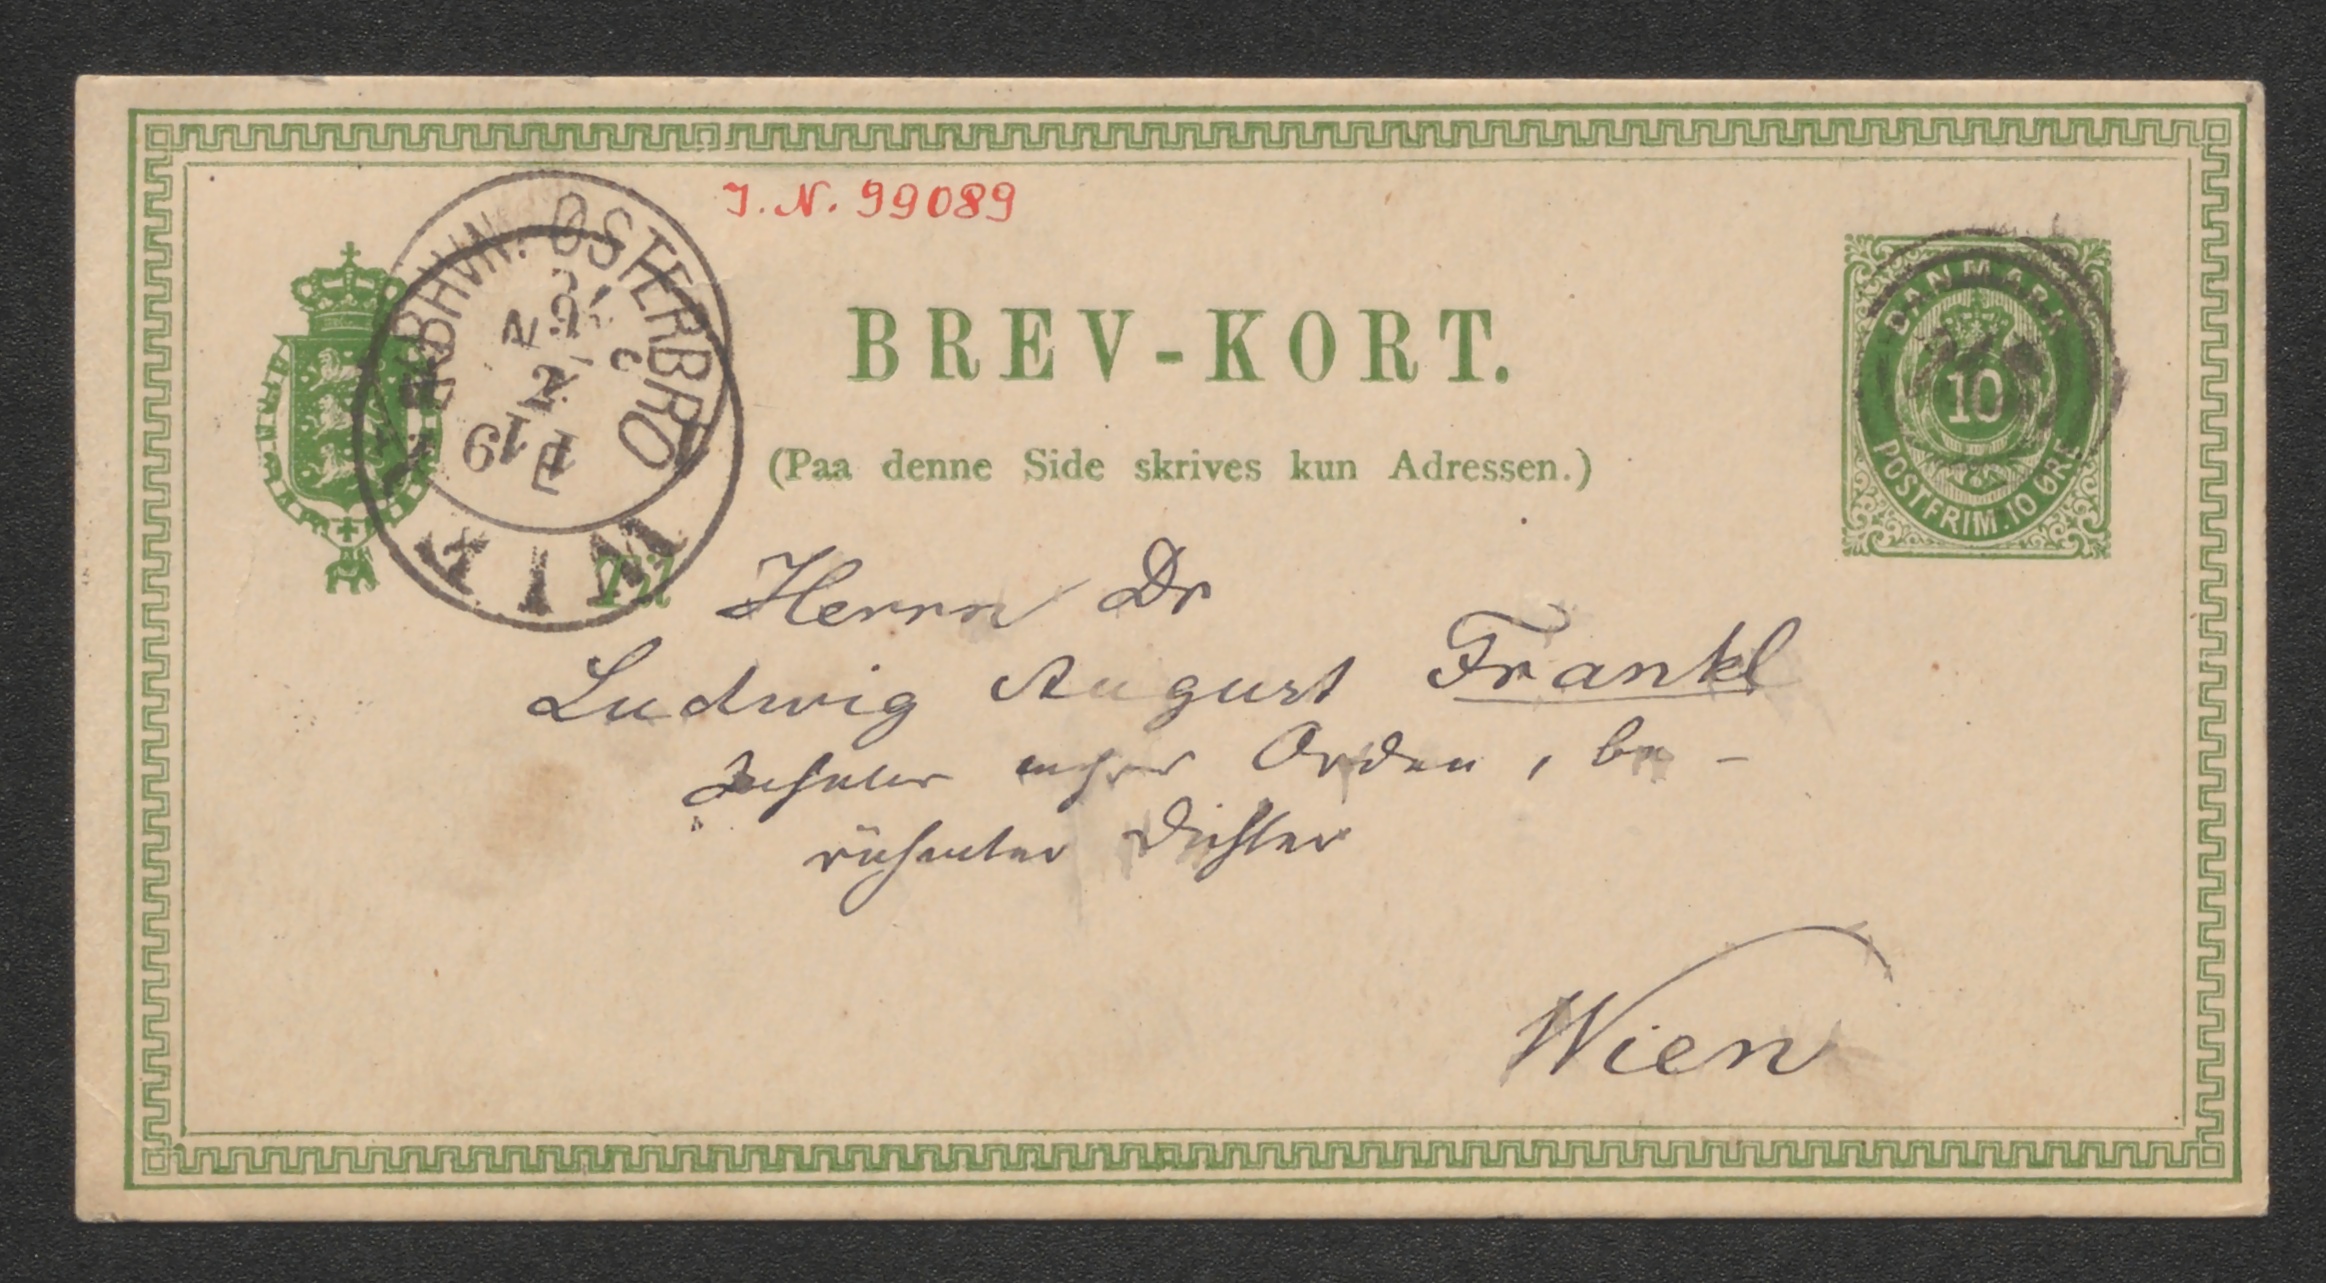 J. N. 99089
KBHVN. ØSTERBRO
DANMARK
10
POSTFRIM. 10 ØRE
BREV-KORT.
(Paa denne Side skrives kun Adressen.)
WIEN
Til
Herrn Dr
Ludwig August Frankl
Inhaber mehrer Orden, be-
rühmter Dichter
Wien